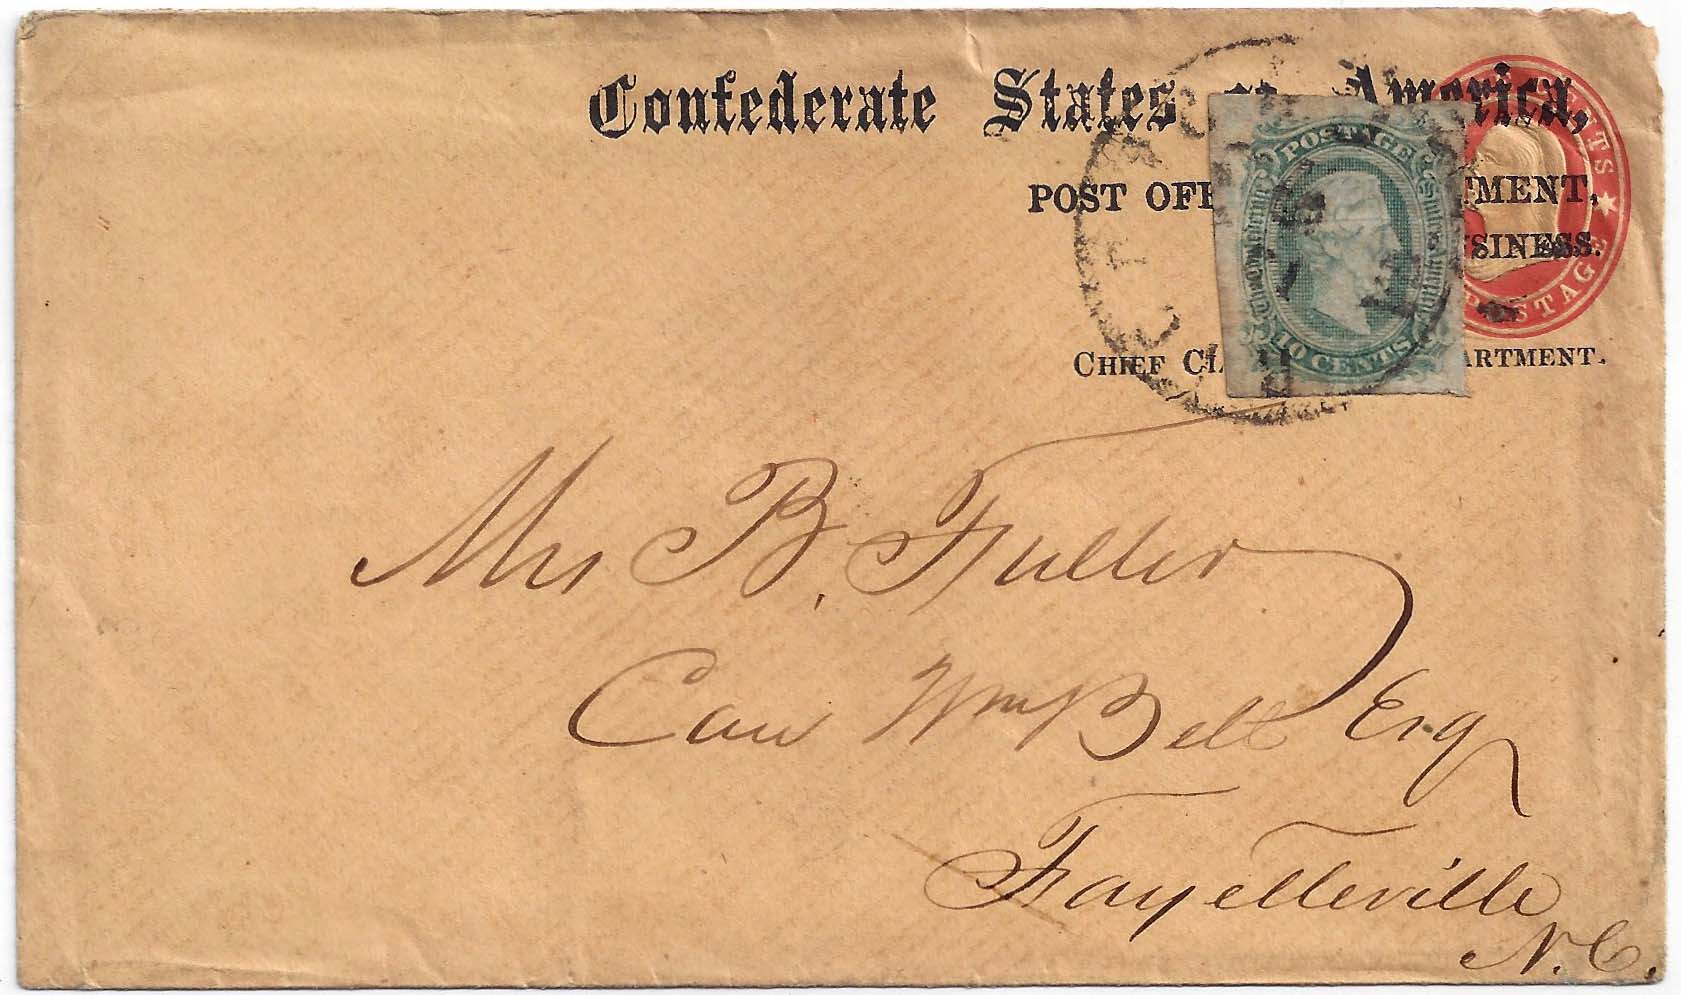 Confederate States America,
POST OFF TMENT,
SINESS.
CHIEF CL ARTMENT.
POSTAGE
10 CENTS
NTS
POSTAGE
Mrs B. Fuller
Care Wm Bell Esq
Fayetteville
N.C.